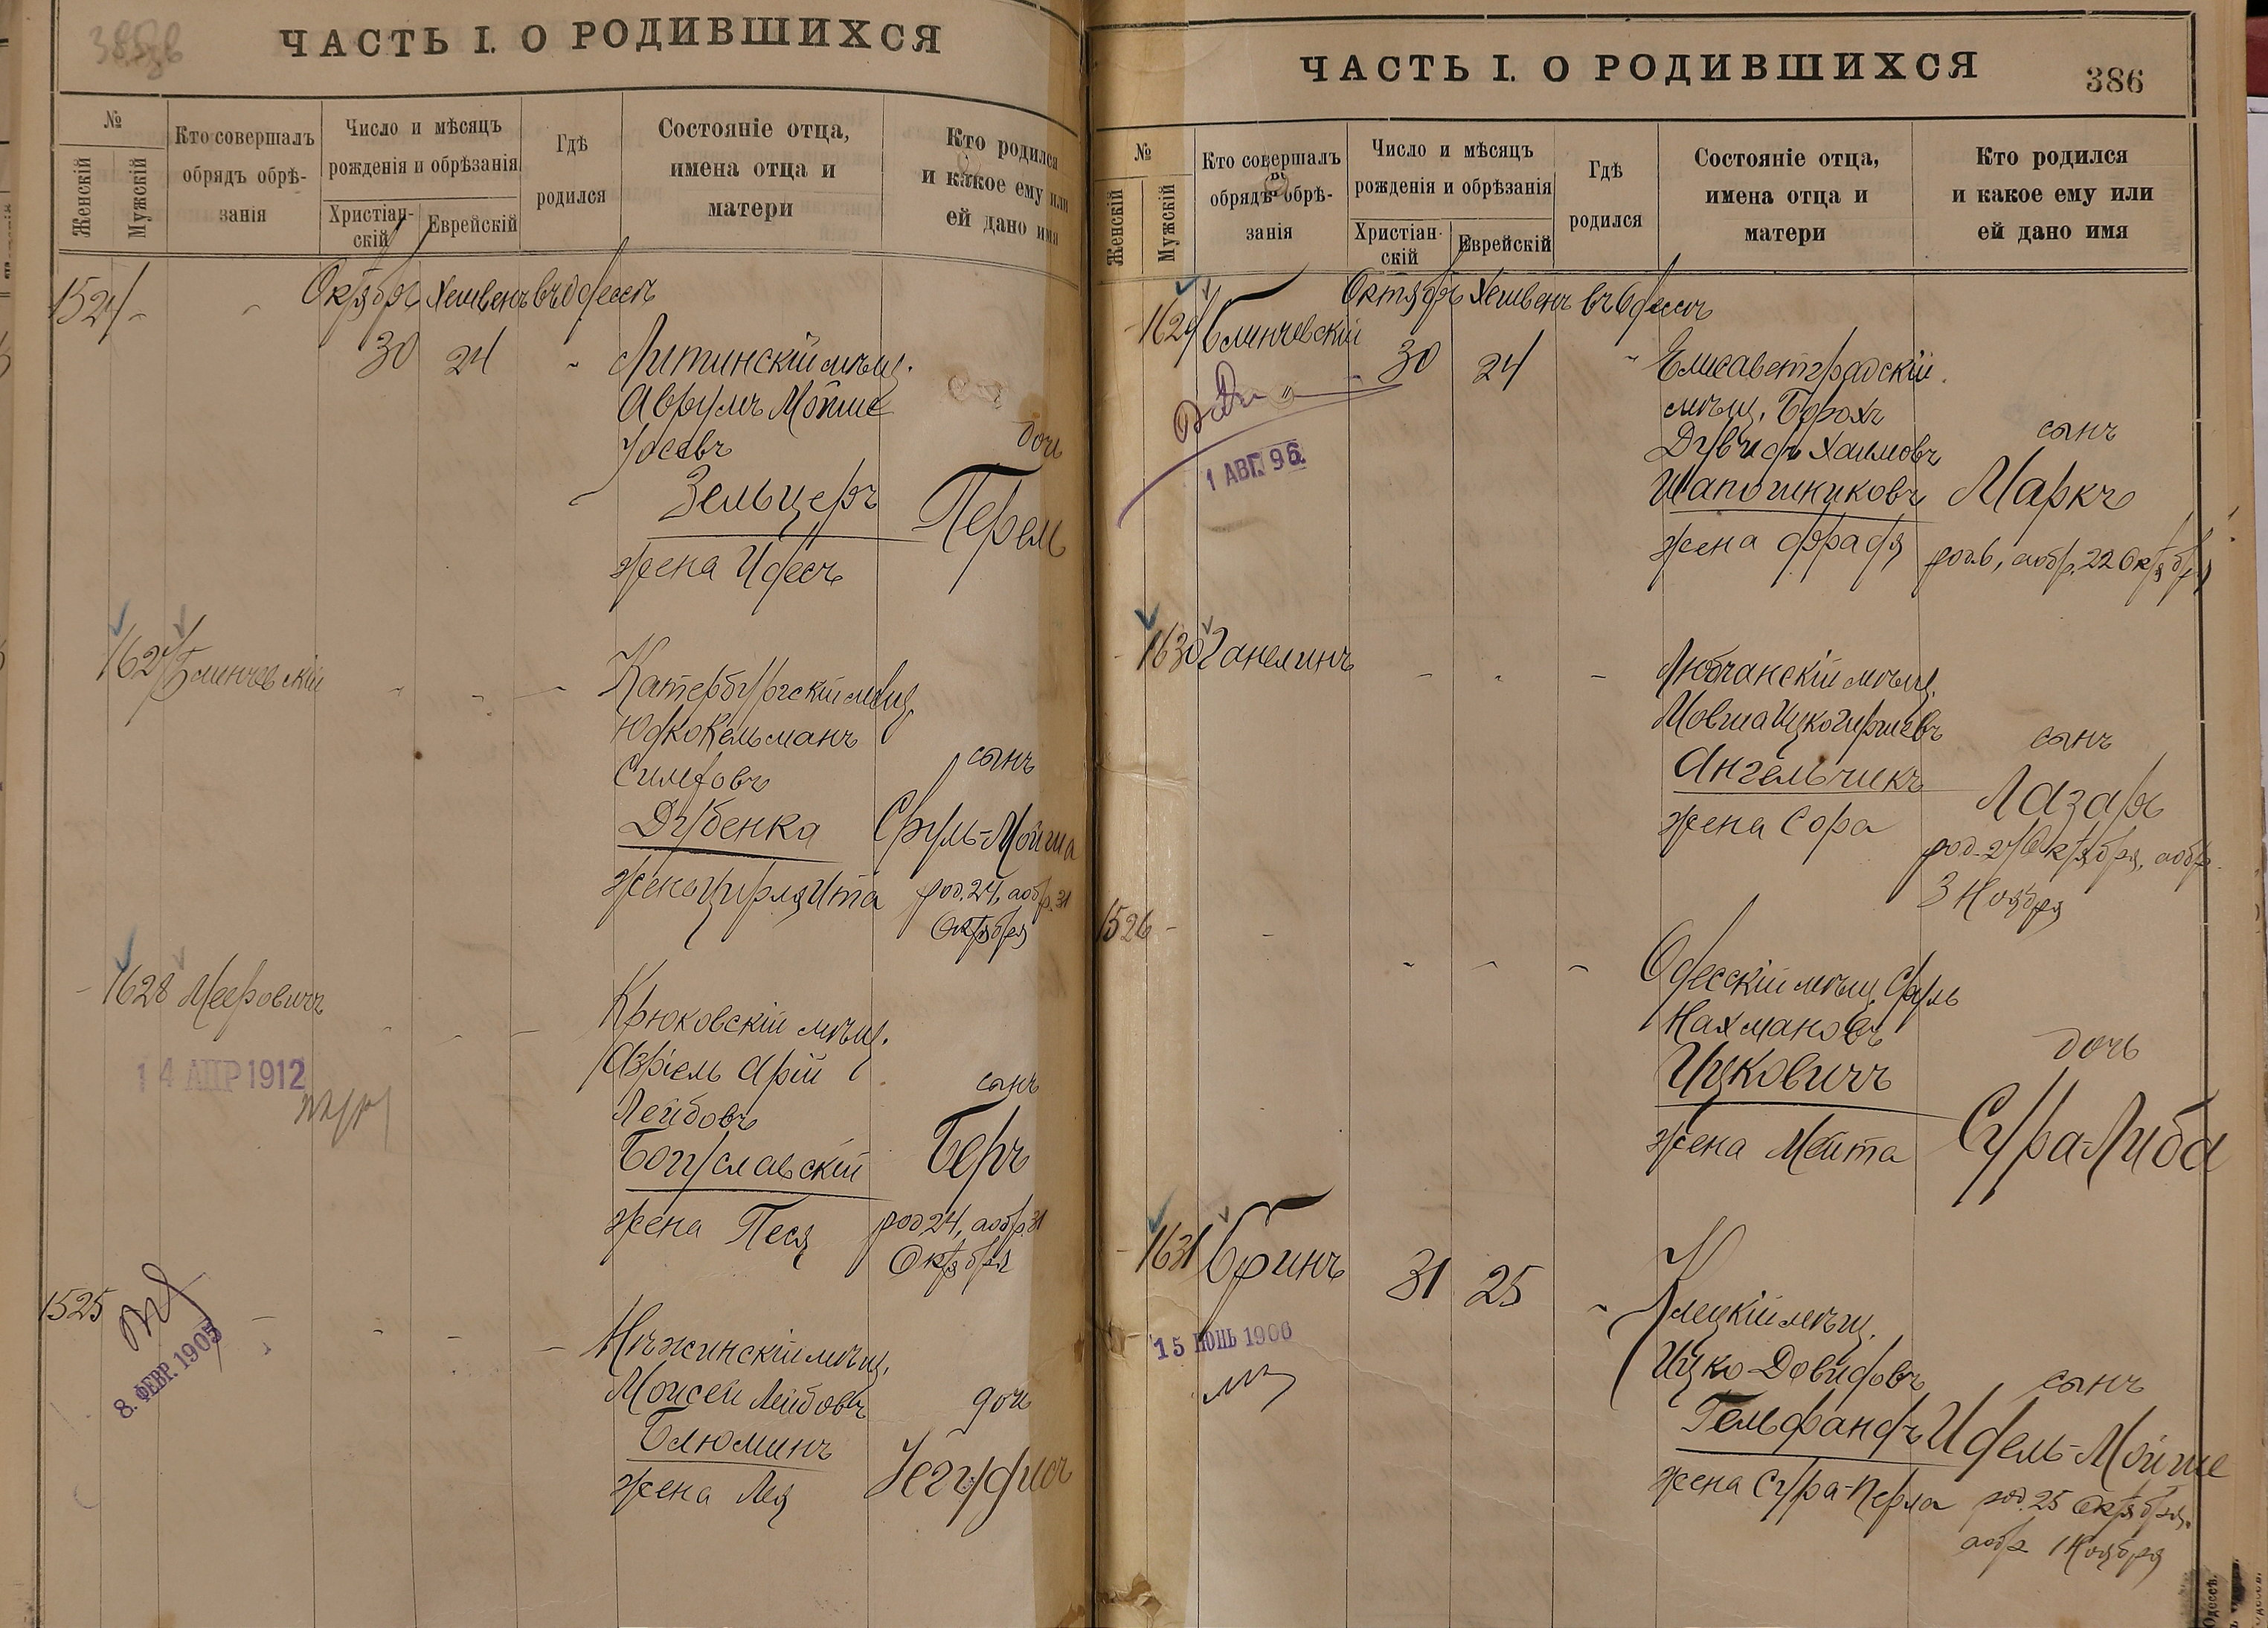 ЧАСТЬ I. О РОДИВШИХСЯ
№
Женскій
Мужскій
Кто совершалъ
обрядъ обрѣ-
занія
Число и мѣсяцъ
рожденія и обрѣзанія
Христіан-
скій
Еврейскій
Гдѣ
родился
Состояніе отца,
имена отца и
матери
Кто родился
и какое ему или
ей дано имя
1524 -
Октябрь Хешвенъ въ Одессѣ
30 24
Литинскій мѣщ.
Аврумъ Мойше
Іосевъ
Зельцеръ
жена Идесъ
дочь
Перель
1627 Блинчевскій
Катербургскій мѣщ.
Юдко Кельманъ
Дубенка
жена Цирля Ита
сынъ
Сруль-Мойша
род. 24, а обр. 31
Октября
1628 Мееровичъ
14 АПР 1912
Крюковскій мѣщ.
Азріель Арій
Лейбовъ
Богуславскій
жена Песя
сынъ
Беръ
род 24, а обр. 31
Октября
1525
8. ФЕВР. 1905
Нѣжинскій мѣщ.
Моисей Лейбовъ
Блюминъ
жена Лея
дочь
Іегудисъ
ЧАСТЬ I. О РОДИВШИХСЯ
386
№
Женскій
Мужскій
Кто совершалъ
обрядъ обрѣ-
занія
Число и мѣсяцъ
рожденія и обрѣзанія
Христіан-
скій
Еврейскій
Гдѣ
родился
Состояніе отца,
имена отца и
матери
Кто родился
и какое ему или
ей дано имя
1629 Блинчевскій
Октябрь Хешвенъ въ Одессѣ
30 24
1 АВГ. 96.
Елисаветградскій
мѣщ. Борохъ
Дувидъ Хаимовъ
Шапошниковъ
жена Фрадя
сынъ
Маркъ
а обр. 22 Октября
1630 Ганелинъ
Любчанскій мѣщ.
Мовша Ицко Гиршевъ
Ангельчикъ
жена Сора
сынъ
Лазарь
род. 27 Октября, а обр.
3 Ноября
1526 -
Одесскій мѣщ. Сруль
Нахмановъ
Ицковичъ
жена Мейта
дочь
Сура-Либа
1631 Бринъ
31 25
15 ІЮНЬ 1906
Клецкій мѣщ.
Ицко-Довидовъ
Гельфандъ
жена Сура-Перла
сынъ
Идель-Мойше
род. 25 Октября,
а обр. 1 Ноября